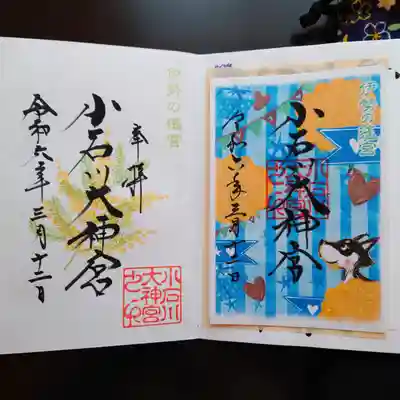 奉拝
小石川大神宮
令和六年三月十二日
小石川
大神宮
之印
小石川大神宮
令和六年三月十二日